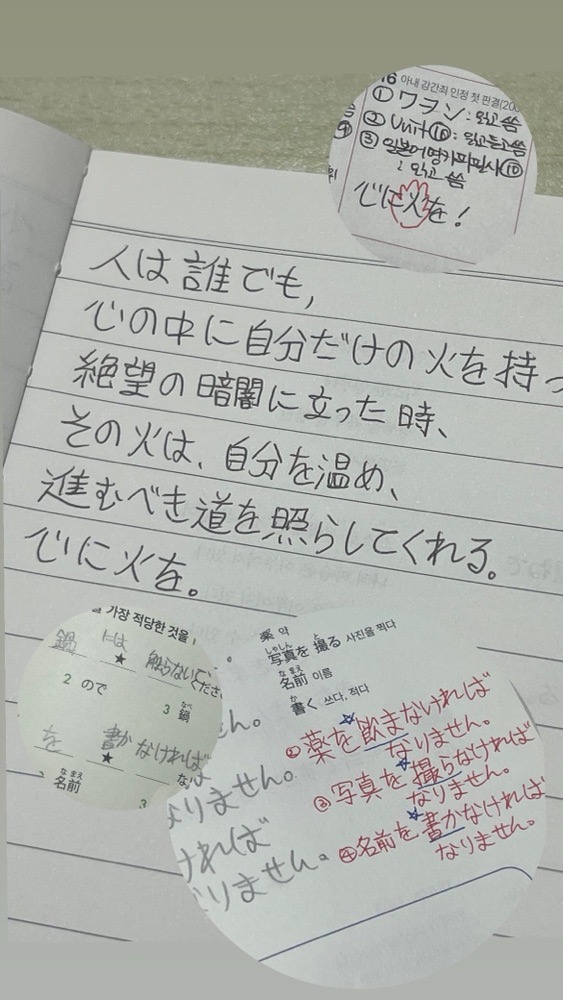 아내 강간죄 인정 첫 판결(200
① ワヲン: 읽고 씀
② Unit⑯: 읽고 듣고 씀
③ 일본어 명카피 필사⑩
: 읽고 씀
心に火を!
人は誰でも,
心の中に自分だけの火を持っ
絶望の暗闇に立った時、
その火は、自分を温め、
進むべき道を照らしてくれる。
心に火を。
가장 적당한 것을
鍋 は 触らないで
ください
★
2 ので
3 鍋
なべ
を 書か なければ
★
なまえ
名前
3
な
薬 약
しゃしん と
写真を 撮る 사진을 찍다
なまえ
名前 이름
か
書く 쓰다, 적다
ん。
なりません。
ければ
なりません。
② 薬を飲まなければ
なりません。
③ 写真を撮らなければ
なりません。
④ 名前を書かなければ
なりません。